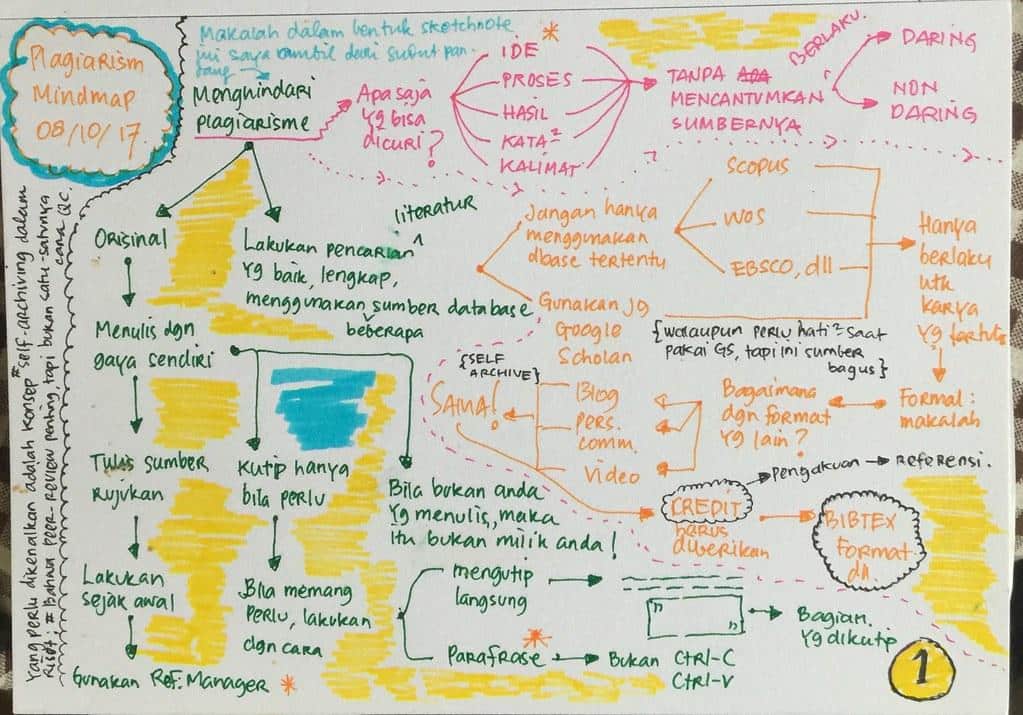 Plagiarism
Mindmap
08/10/17
Makalah dalam bentuk sketchnote
ini saya ambil dari sudut pan-
dang
Menghindari
plagiarisme
Apa saja
yg bisa
dicuri?
IDE
PROSES
HASIL
KATA²
KALIMAT
TANPA
MENCANTUMKAN
SUMBERNYA
BERLAKU
DARING
NON
DARING
Orisinal
Menulis dgn
gaya sendiri
Tulis sumber
rujukan
Lakukan
sejak awal
Gunakan Ref. Manager
literatur
Lakukan pencarian ^
yg baik, lengkap,
menggunakan sumber database
beberapa
Kutip hanya
bila perlu
Bila memang
perlu, lakukan
dgn cara
Bila bukan anda
yg menulis, maka
itu bukan milik anda!
mengutip
langsung
" "
Bagian.
yg dikutip
Parafrase
Bukan Ctrl-C
Ctrl-V
Jangan hanya
menggunakan
dbase tertentu
SCOPUS
WOS
EBSCO, dll
Hanya
berlaku
utk
karya
yg tertulis
Formal:
makalah
Gunakan jg
Google
Scholar
{walaupun perlu hati² saat
pakai GS, tapi ini sumber
bagus}
Bagaimana
dgn format
yg lain?
Blog
pers.
comm.
Video
{SELF
ARCHIVE}
SAMA!
CREDIT
harus
diberikan
Pengakuan
Referensi.
BIBTEX
Format
dll.
1
Yang perlu dikenalkan adalah konsep #self-archiving dalam
riset; # bahwa peer-review penting, tapi bukan satu-satunya
cara QC